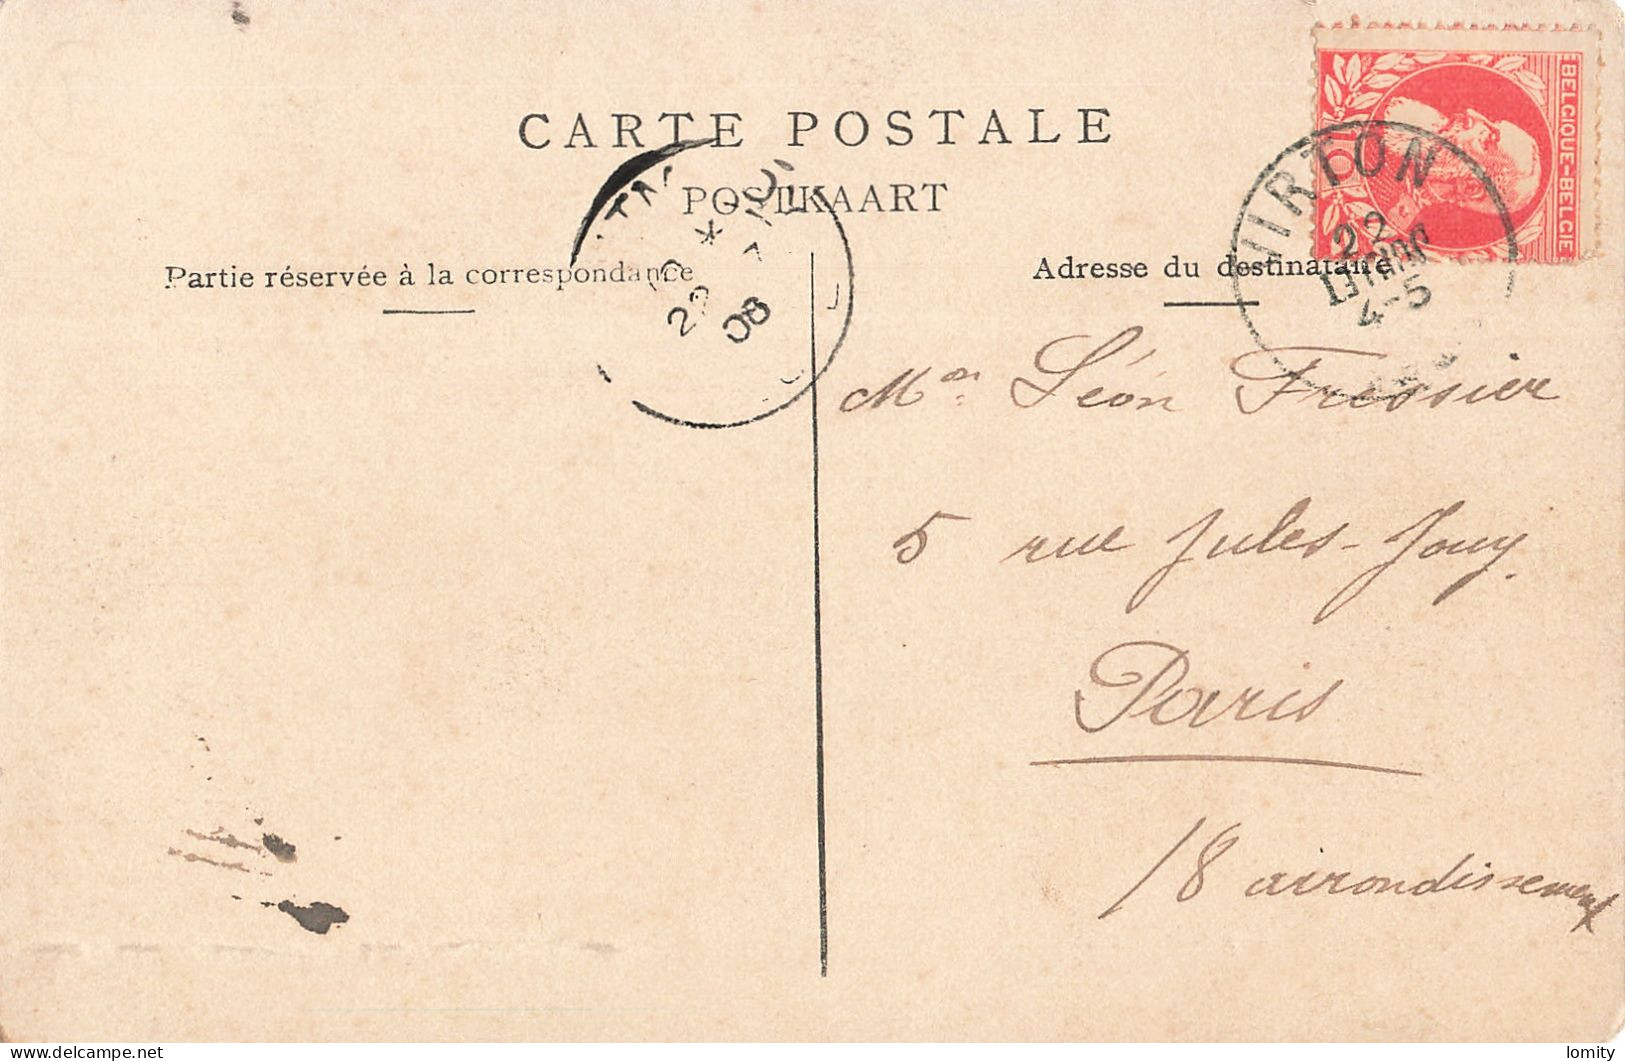 CARTE POSTALE
POSTKAART
Partie réservée à la correspondance
Adresse du destinataire
BELGIQUE-BELGIE
VIRTON
22
JUILLET
4-5
22 7
08
Mon Léon Fressier
5 rue Jules-Jouy.
Paris
18 arrondissement
delcampe.net
lomity